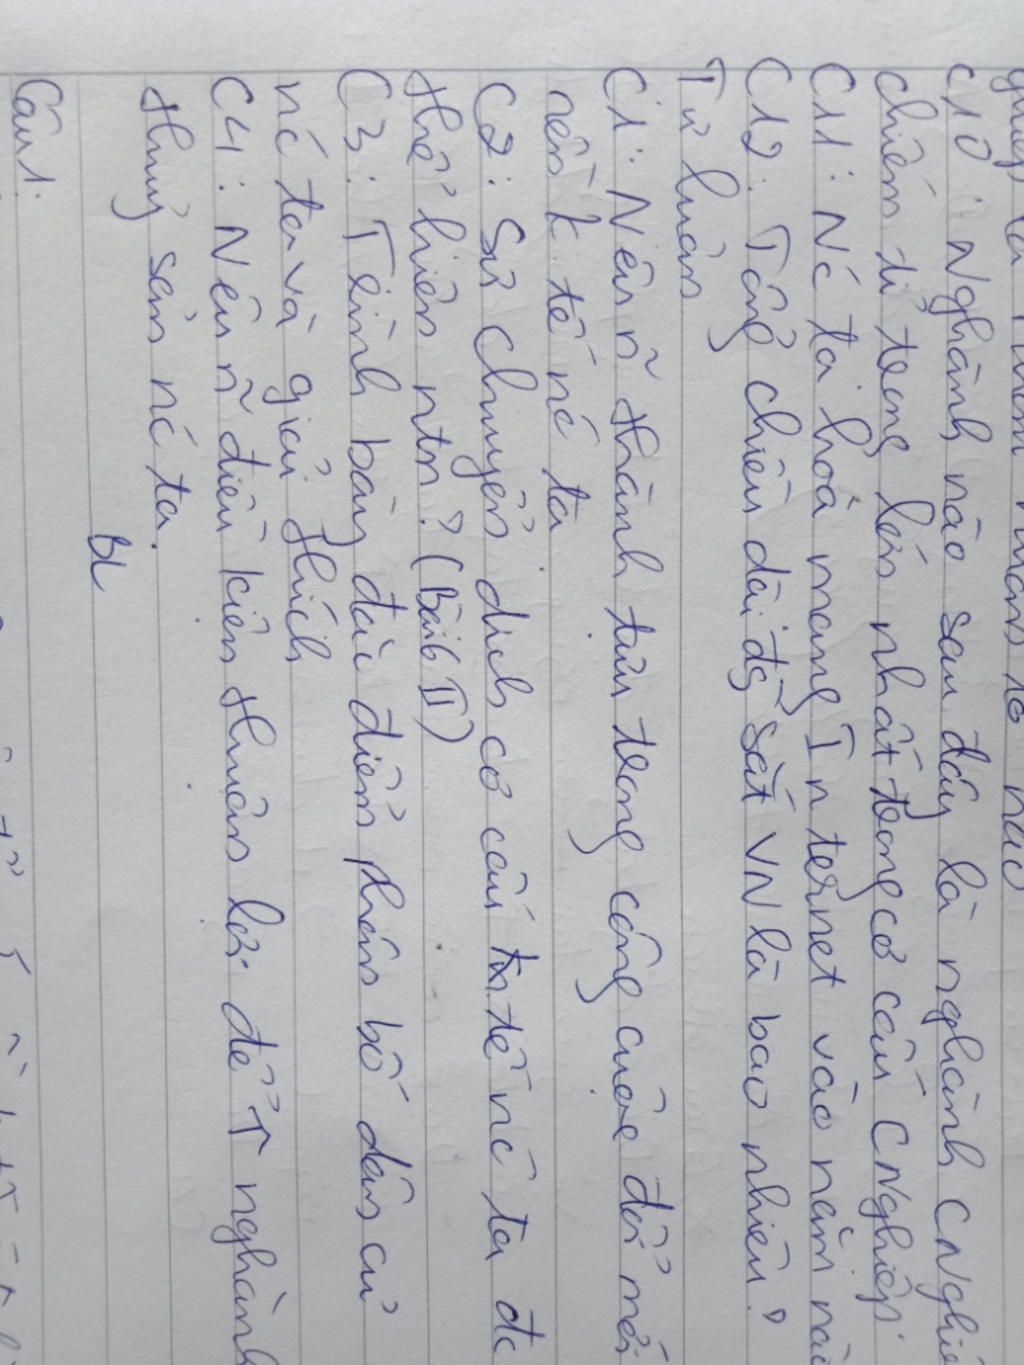 C10: Nghành nào sau đây là nghành CNghiệ
chiếm tỉ trọng lớn nhất trong cơ cấu CNghiệp.
C11: Nc ta hoà mạng Internet vào năm nào
C12: Tổng chiều dài đg sắt VN là bao nhiêu?
Tự luận
C1: Nêu n~ thành tựu trong công cuộc đổi mới
nền k tế nc ta
C2: Sự chuyển dịch cơ cấu kn tế nc ta đc
thể hiện ntn? (Bài 6 II)
C3: Trình bày đặc điểm phân bố dân cư
nc ta và giải thích
C4: Nêu n~ điều kiện thuận lợi để ↑ nghành
thuỷ sản nc ta.
BL
Câu 1: